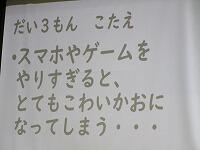 だい３もん　こたえ
・スマホやゲームを
やりすぎると、
とてもこわいかおに
なってしまう・・・